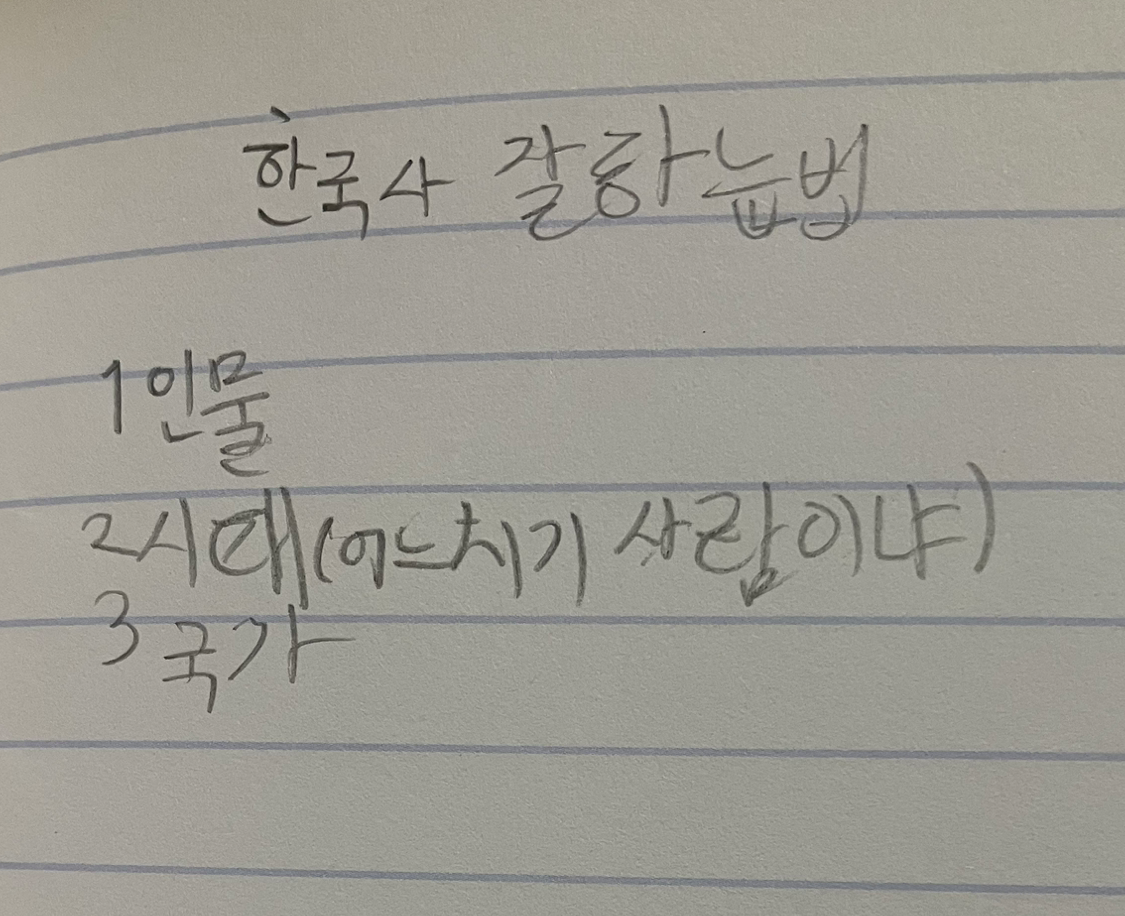 한국사 잘하늡법
1 인물
2시대(어느시기 사람이냐)
3 국가